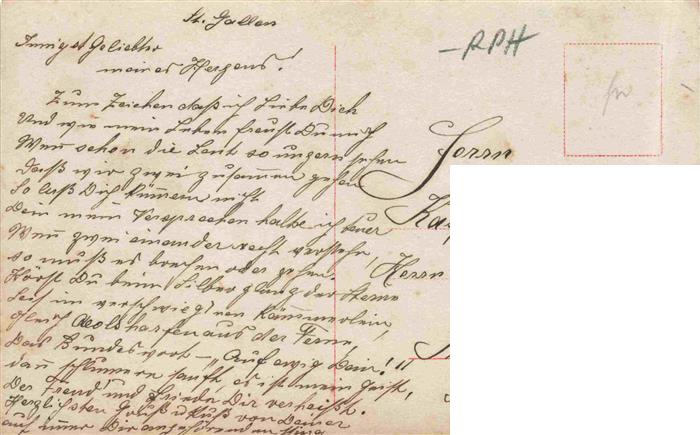 St. Gallen
Innigst Geliebter
meines Herzens!
Zum Zeichen daß ich Liebe Dich
Und wie mein Leben freust Du mich
Wenn schon die Leut so ungern sehen
Daß wir zwei zusammen gehen
So laß Dich kümmern nicht
Dein mein Versprechen halte ich teuer
Wenn zwei einander recht verstehn
so muß es brechen oder gehen.
Hörst Du beim Silberglanz der Sterne
Tief im verschwieg'nen Kämmerlein,
Gleich Aeolsharfen aus der Ferne,
Das Bundeswort - "Auf ewig Dein!"
dann schlummre sanft, es ist mein Geist,
Der Freud' und Friede Dir verheißt.
Herzlichsten Gruß u Kuß von Deiner
auf immer Dir angehörenden
-RPH
Herrn
Herrn